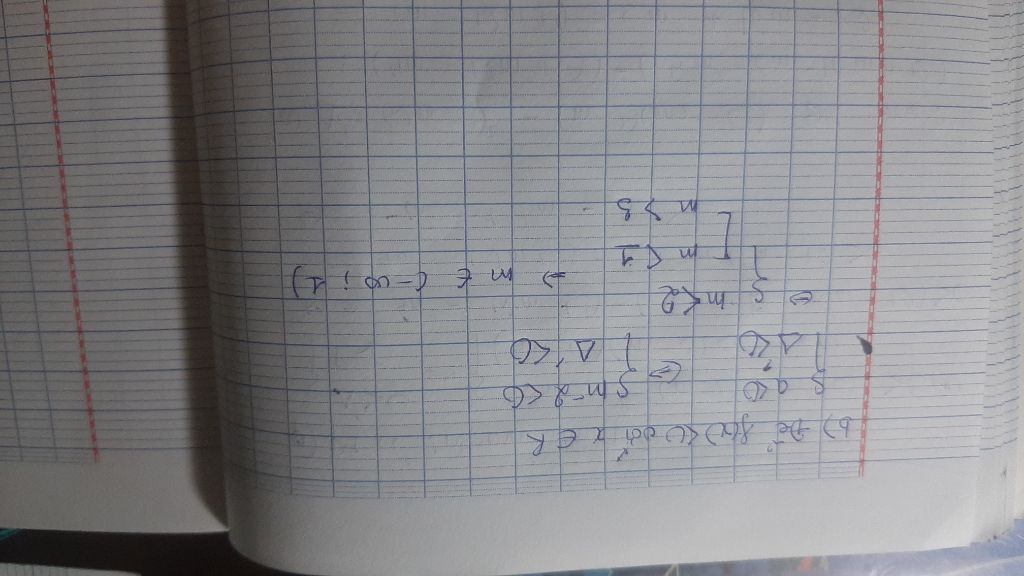 b) Để f(x) < 0 với x ∈ R
{ a < 0
Δ' < 0 ⇔ { m - 2 < 0
Δ' < 0
⇔ { m < 2
[ m < 1
m > 3 ⇒ m ∈ (-∞; 1)